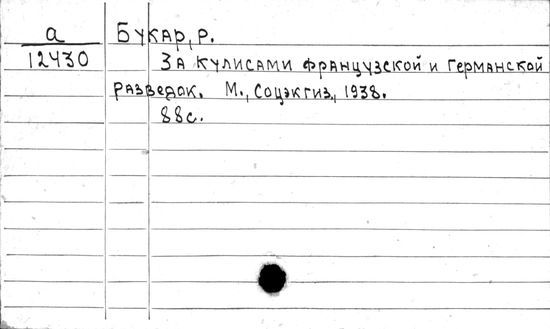 а
12430
Букар, Р.
За кулисами французской и германской
разведок. М., Соцэкгиз, 1938.
88с.